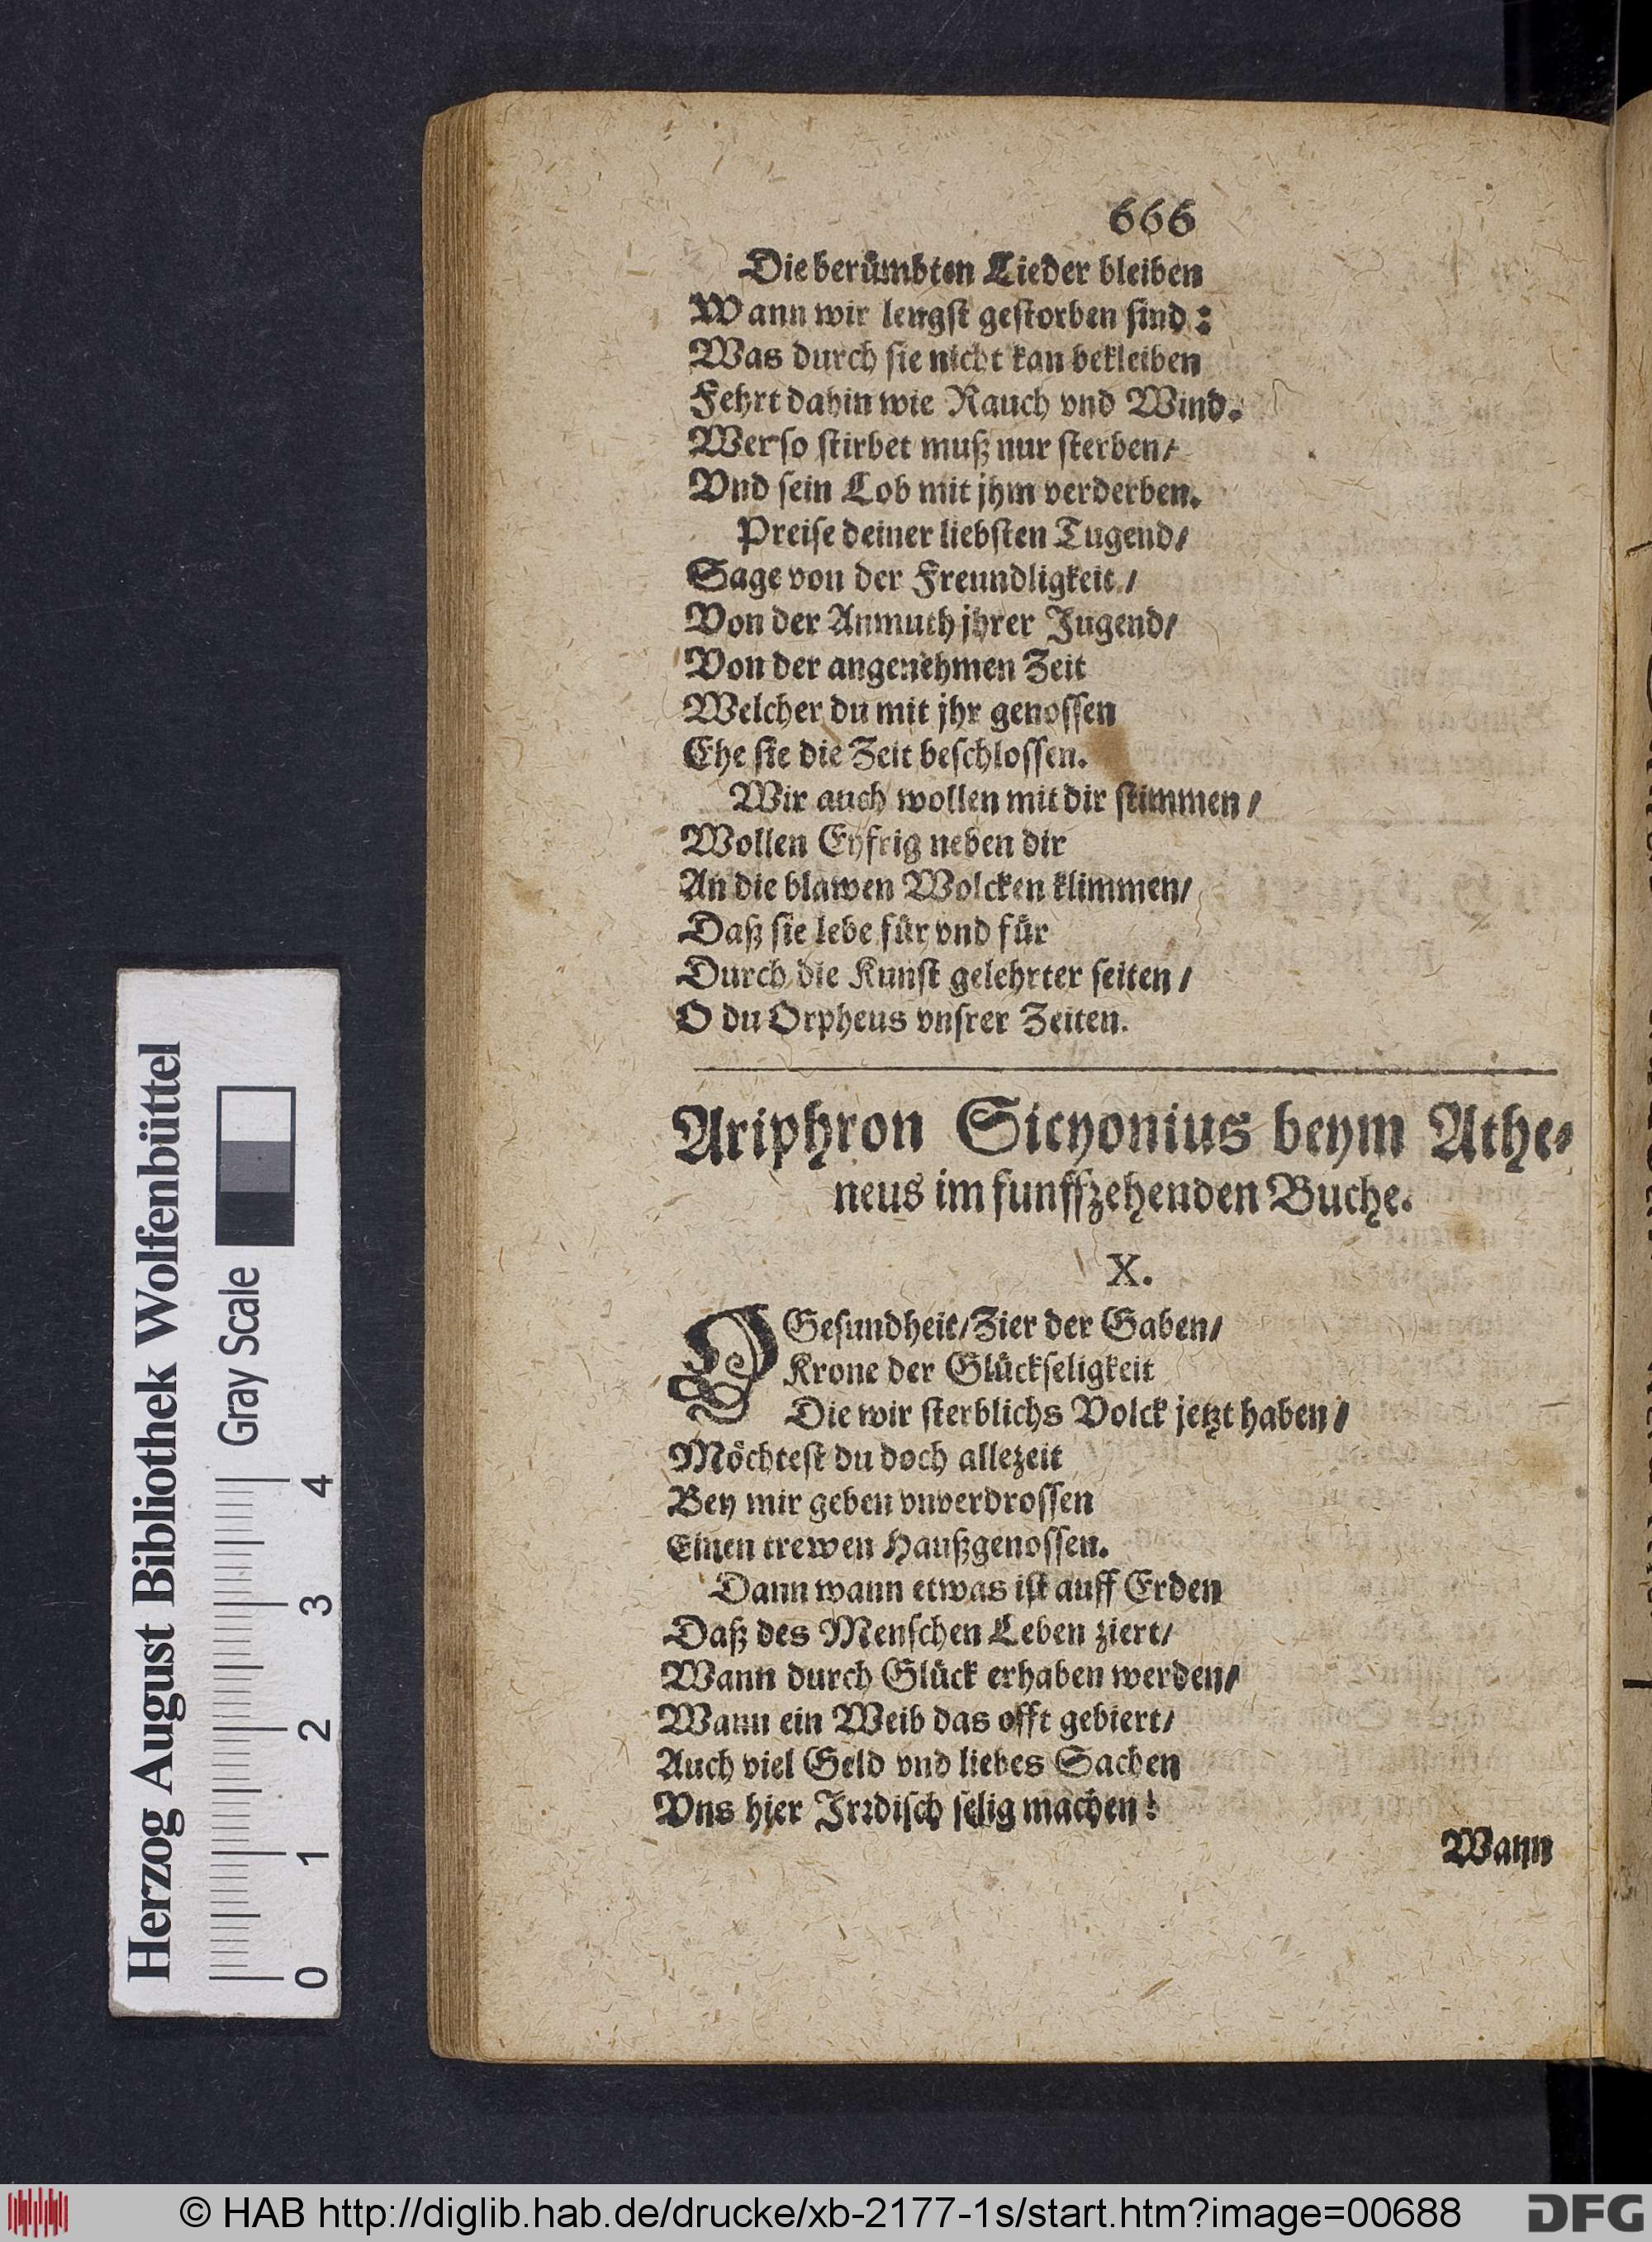 666
Die berümbten Lieder bleiben
Wann wir lengst gestorben sind:
Was durch sie nicht kan bekleiben
Fehrt dahin wie Rauch vnd Wind.
Wer so stirbet muß nur sterben/
Vnd sein Lob mit jhm verderben.
Preise deiner liebsten Tugend/
Sage von der Freundligkeit/
Von der Anmuth jhrer Jugend/
Von der angenehmen Zeit
Welcher du mit jhr genossen
Ehe sie die Zeit beschlossen.
Wir auch wollen mit dir stimmen/
Wollen Eyfrig neben dir
An die blawen Wolcken klimmen/
Daß sie lebe für vnd für
Durch die Kunst gelehrter seiten/
O du Orpheus vnsrer Zeiten.
Ariphron Sicyonius beym Athe-
neus im funffzehenden Buche.
X.
O Gesundheit/Zier der Gaben/
Krone der Glückseligkeit
Die wir sterblichs Volck jetzt haben/
Möchtest du doch allezeit
Bey mir geben vnverdrossen
Einen trewen Haußgenossen.
Dann wann etwas ist auff Erden
Daß des Menschen Leben ziert/
Wann durch Glück erhaben werden/
Wann ein Weib das offt gebiert/
Auch viel Geld vnd liebes Sachen
Vns hier Irrdisch selig machen!
Wann
Herzog August Bibliothek Wolfenbüttel
Gray Scale
0 1 2 3 4
© HAB http://diglib.hab.de/drucke/xb-2177-1s/start.htm?image=00688
DFG